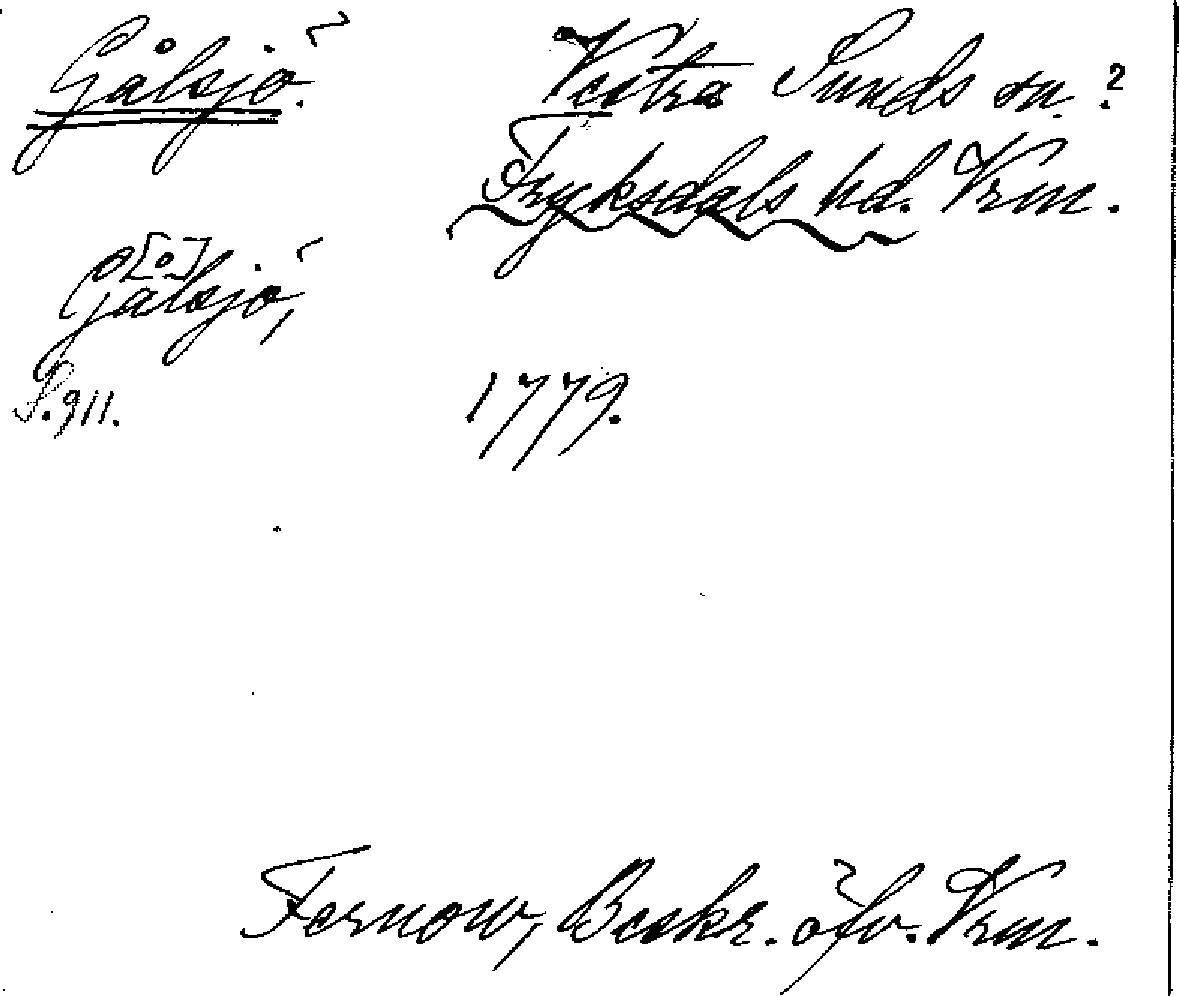 Gålsjö. Vestra Sunds sn. ?
Fryksdals hd. Vrm.
G[å]lsjö,
S. 911. 1779.
Fernow, Beskr. öfv. Vrm.